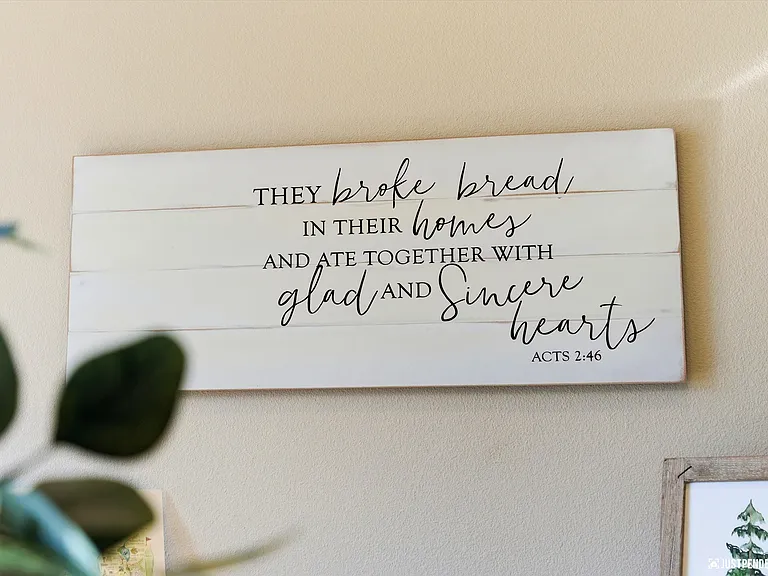 THEY broke bread
IN THEIR homes
AND ATE TOGETHER WITH
glad AND Sincere
hearts
ACTS 2:46